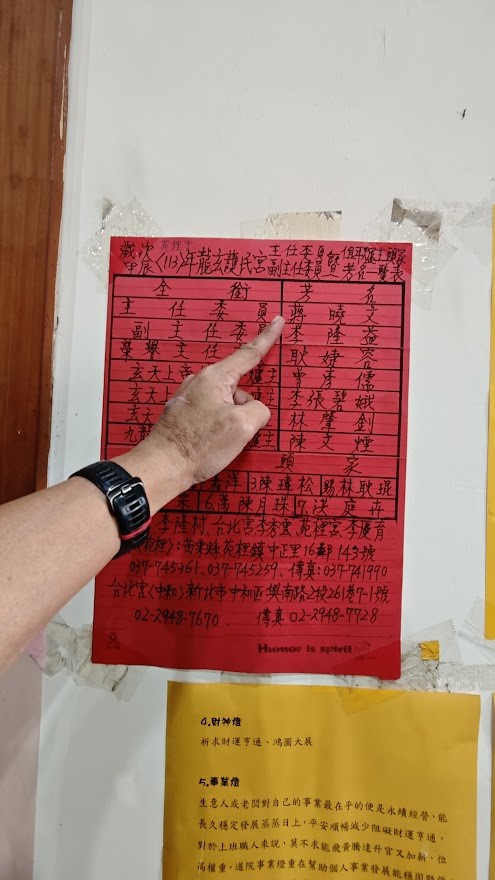 歲次
甲辰(113)年龍玄護民宮
主任委員暨
副主任委員
芳名一覽表
全銜 芳名
主任委員 蔣曉文
副主任委員 李隆益
榮譽主任 耿婕容
玄天上帝 爐主 曾彥儒
玄天上 爐主 李張碧娥
玄天 林肇釗
九龍 爐主 陳文煙
頭家
洋 3.陳瑋松 賜林耿堒
6.萬陳月珠 7.洪庭卉
李陸村、台北宮李秀雲、苑裡宮李慶育
苑裡):苗栗縣苑裡鎮中正里16鄰143號
037-745361、037-745259、傳真:037-741990
台北宮(中和)新北市中和區興南路2段261巷7-1號
02-2948-7670、 傳真 02-2948-7728
Humor is spirit
4.財神燈
祈求財運亨通、鴻圖大展
5.事業燈
生意人或老闆對自己的事業最在乎的便是永續經營,能
長久穩定發展蒸蒸日上,平安順暢減少阻礙財運亨通。
對於上班職人來說,莫不求能飛黃騰達升官又加薪,位
高權重。道院事業燈重在幫助個人事業發展能穩固